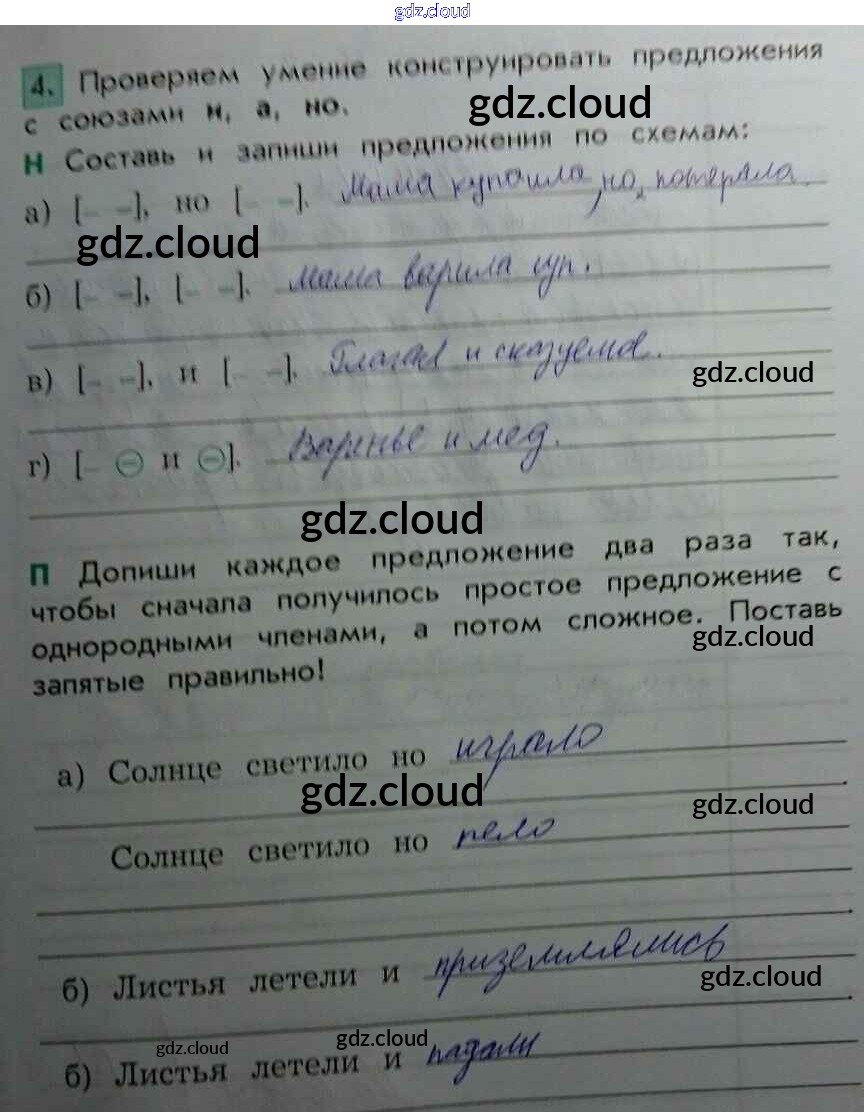 gdz.cloud
4. Проверяем умение конструировать предложения
с союзами и, а, но.
gdz.cloud
Н Составь и запиши предложения по схемам:
а) [– –], но [– –]. Мама купоила, но, потеряла.
gdz.cloud
б) [– –], [– –]. Мама варила суп.
в) [– –], и [– –]. Глагол и сказуемое.
gdz.cloud
г) [– ⊖ и ⊖]. Варенье и мед.
gdz.cloud
П Допиши каждое предложение два раза так,
чтобы сначала получилось простое предложение с
однородными членами, а потом сложное. Поставь
gdz.cloud
запятые правильно!
а) Солнце светило но играло
gdz.cloud
gdz.cloud
Солнце светило но пело
б) Листья летели и приземлялись
gdz.cloud
gdz.cloud
gdz.cloud
б) Листья летели и падали